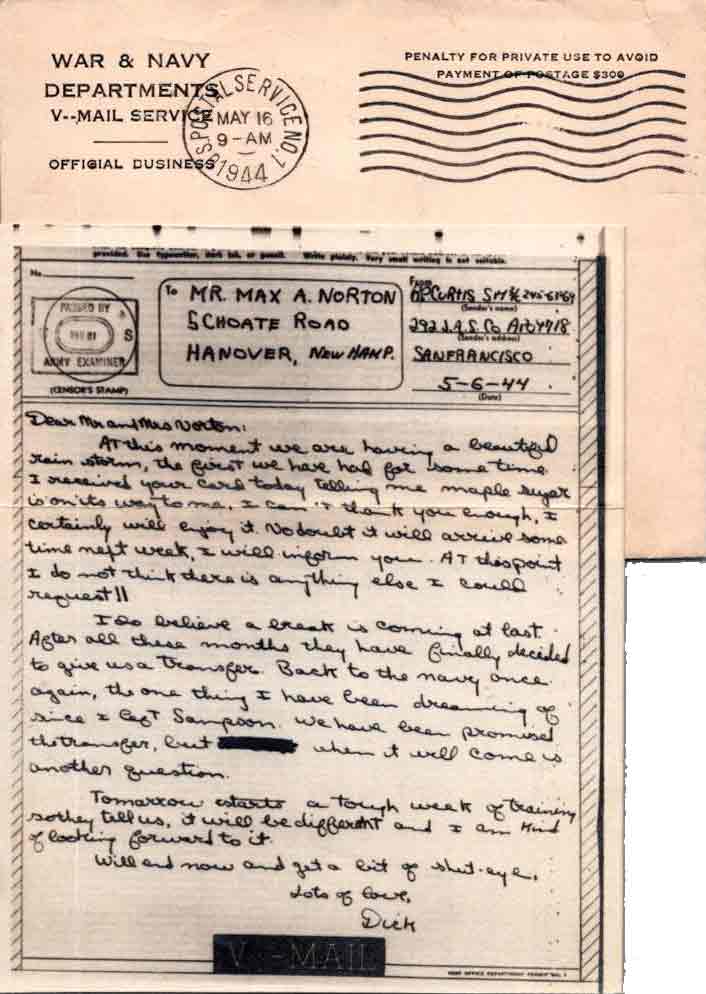 WAR & NAVY
DEPARTMENTS
V--MAIL SERVICE
OFFICIAL BUSINESS
U.S. POSTAL SERVICE NO. 1
MAY 16
9-AM
1944
PENALTY FOR PRIVATE USE TO AVOID
PAYMENT OF POSTAGE $300
provided. Use typewriter, dark ink, or pencil. Write plainly. Very small writing is not suitable.
No.
PASSED BY
S
ARMY EXAMINER
(CENSOR'S STAMP)
To MR. MAX A. NORTON
5 CHOATE ROAD
HANOVER, NEW HAMP.
From
CURTIS
(Sender's name)
292 J.A.S. Co
(Sender's address)
SANFRANCISCO
5-6-44
(Date)
Dear Mr and Mrs Norton:
AT this moment we are having a beautiful
rain storm, the first we have had for some time.
I received your card today telling me maple sugar
is on its way to me, I can't thank you enough, I
certainly will enjoy it. No doubt it will arrive some
time next week, I will inform you. AT this point
I do not think there is anything else I could
request!!
I do believe a break is coming at last.
After all these months they have finally decided
to give us a transfer. Back to the navy once
again, the one thing I have been dreaming of
since I left Sampson. We have been promised
the transfer, but when it will come is
another question.
Tomorrow starts a tough week of training
so they tell us, it will be different and I am kind
of looking forward to it.
Will end now and get a bit of shut-eye.
Lots of love,
Dick
V--MAIL
POST OFFICE DEPARTMENT PERMIT NO. 1